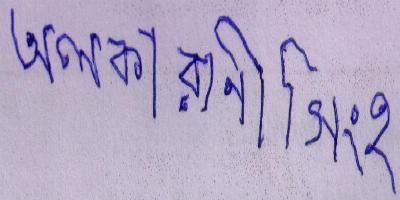 অলকা রানী সিংহ